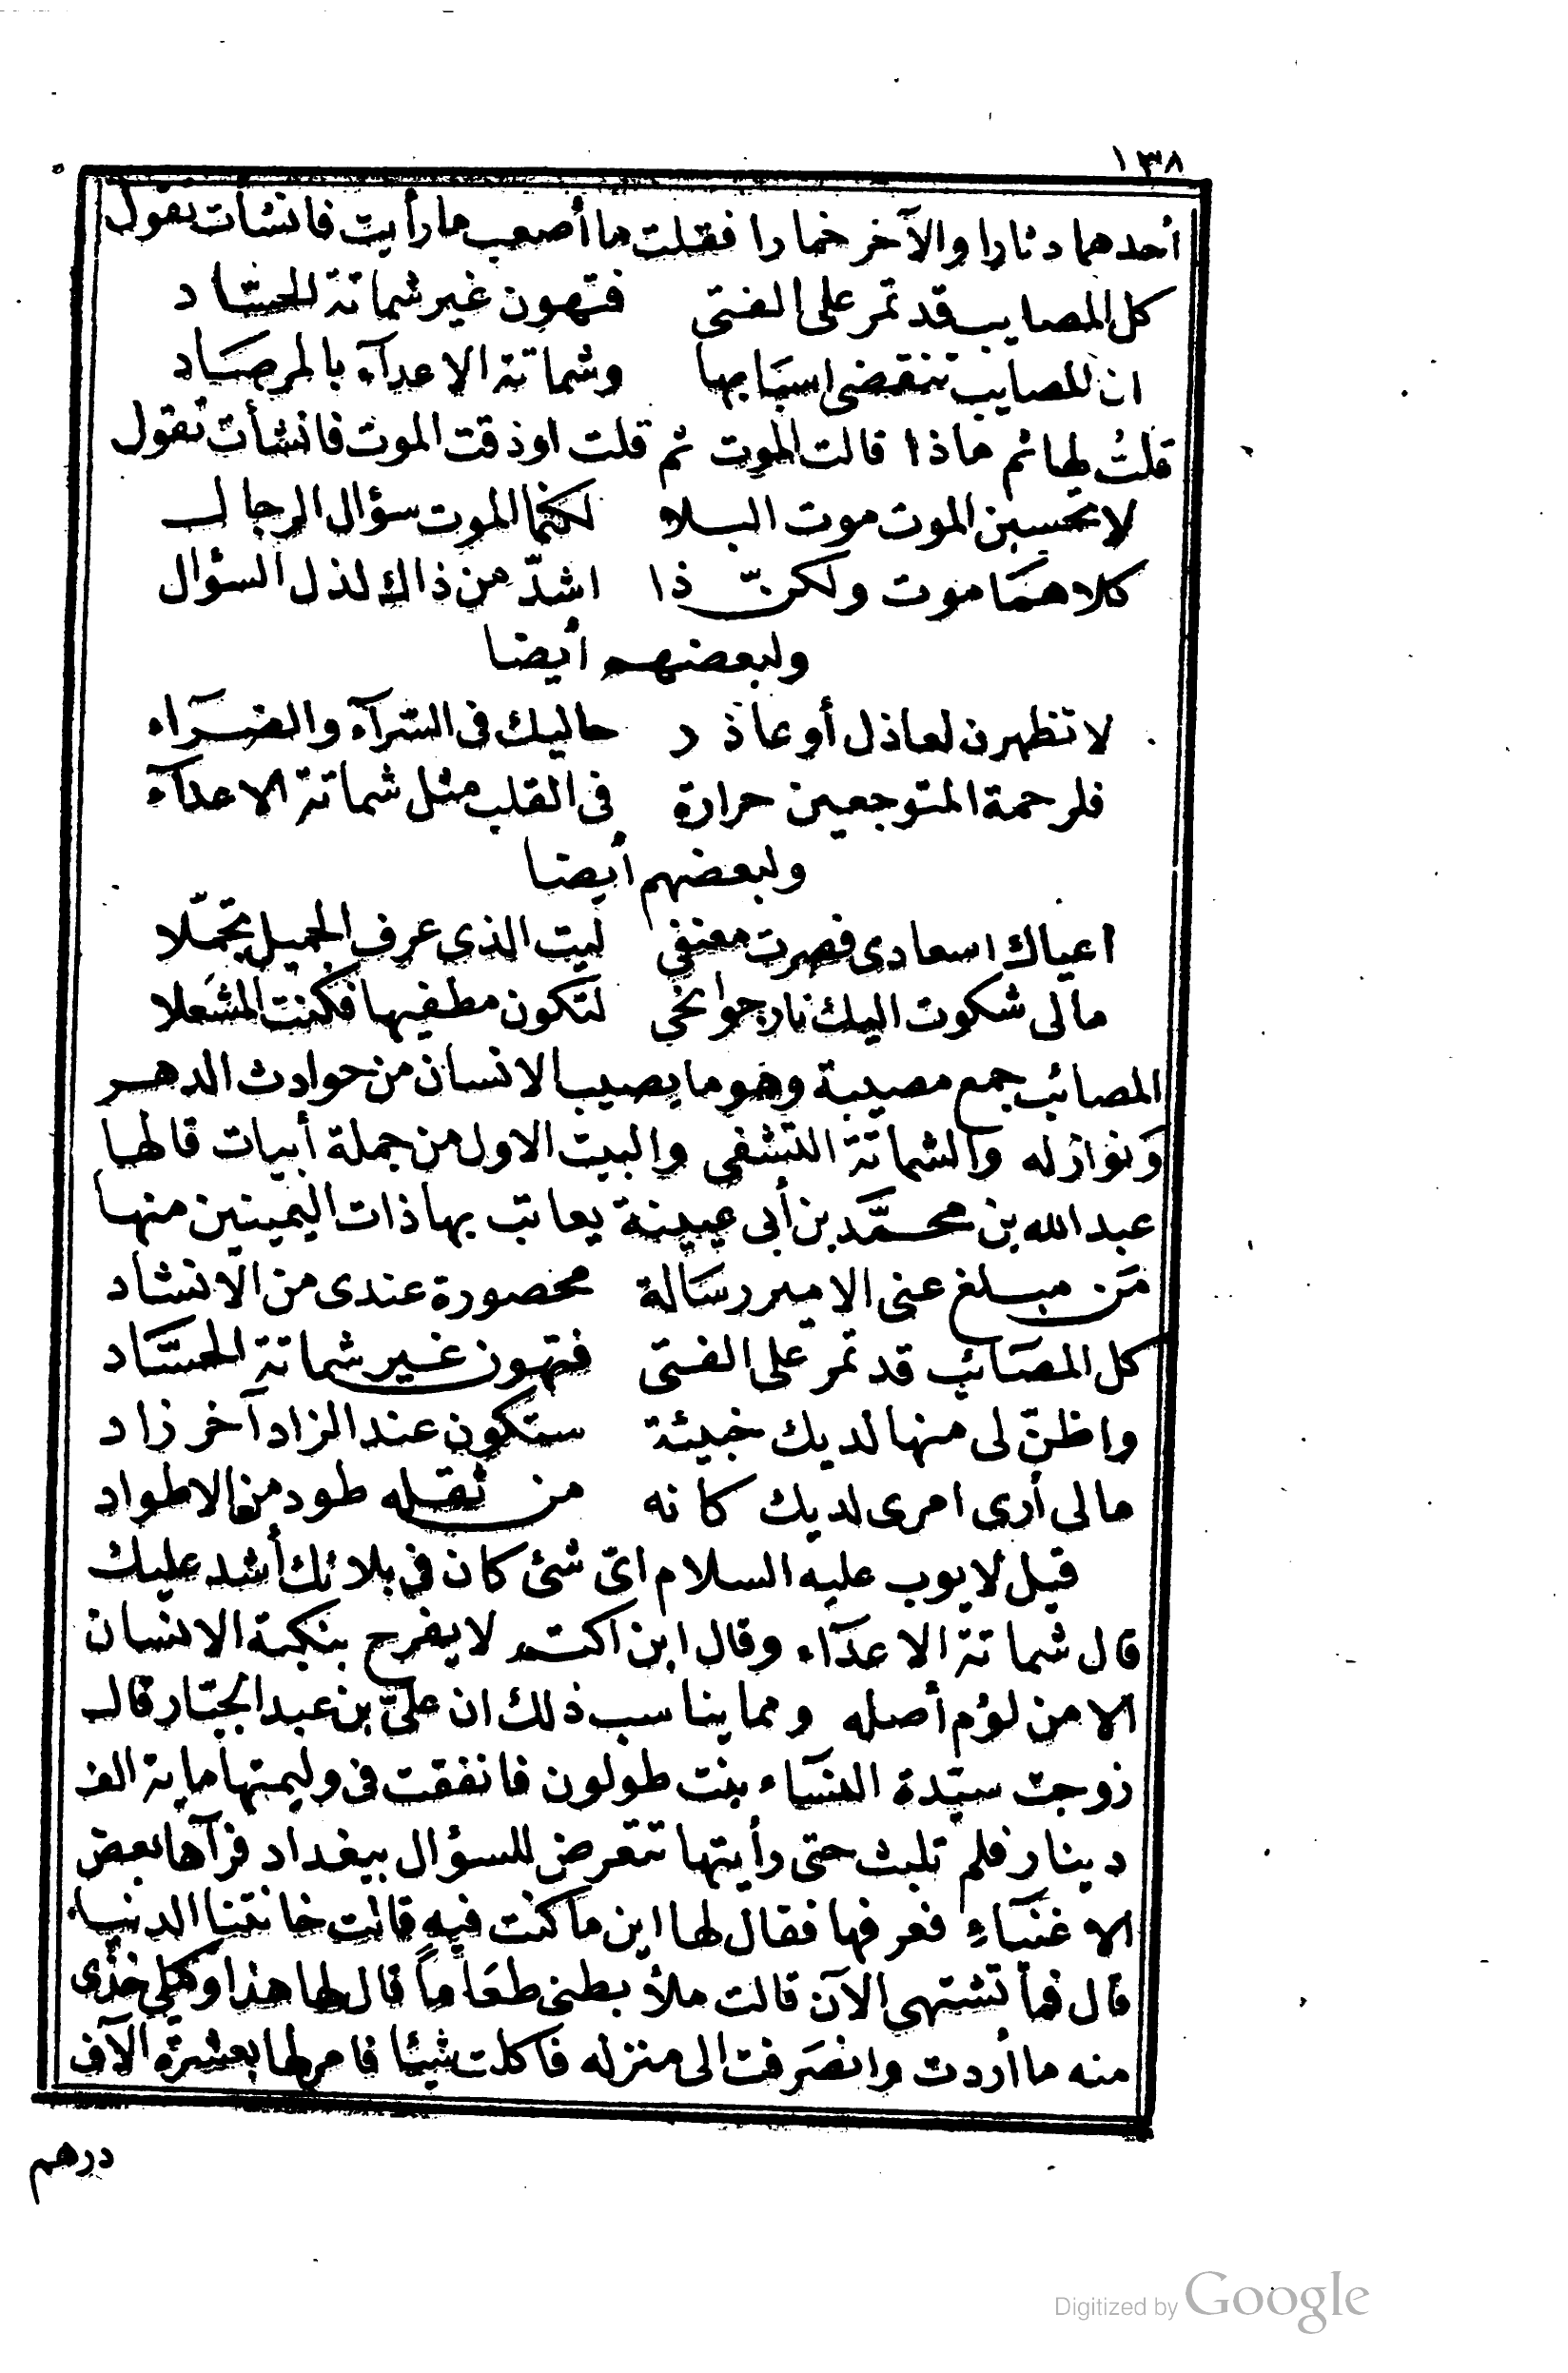 ١٣٨
أحدهما دثارا والآخر خمارا فقلت ما أصعب ما رأيت فانشأت تقول
كل المصايب قد تمر على الفتى فتهون غير شماتة الحسّاد
ان للصايب تنقضى اسبابها وشماتة الاعدآء بالمرصاد
قلتُ لها ثم ماذا قالت الموت ثم قلت اوذقت الموت فانشأت تقول
لا تحسبن الموت موت البلا لكنما الموت سؤال الرجال
كلاهما موت ولكنّ ذا اشدّ من ذاك لذل السؤال
ولبعضهم أيضا
لا تظهرن لعاذل أو عاذر حاليك فى السّرآء والضرّاء
فلرحمة المتوجعين حرارة فى القلب مثل شماتة الاعدآء
ولبعضهم أيضا
اعياك اسعادى فصرت معنفى ليت الذى عرف الجميل تجمّلا
مالى شكوت اليك نار جوانحى لتكون مطفيها فكنت المشعلا
المصائب جمع مصيبة وهو ما يصيب الانسان من حوادث الدهر
ونوازله والشماتة التشفى والبيت الاول من جملة أبيات قالها
عبد الله بن محمّد بن أبى عيينة يعاتب بها ذات اليمينين منها
مَن مبلغ عنى الامير رسَالة محصورة عندى من الانشاد
كل المصَائب قد تمر على الفتى فتهون غير شماتة الحسَّاد
واظنّ لى منها لديك خبيئة ستكون عند الزاد آخر زاد
مالى أرى امرى لديك كانه من ثقله طود من الاطواد
قيل لأيوب عليه السلام اىّ شئ كان فى بلائك أشد عليك
قال شماتة الاعدآء وقال ابن اكتم لا يفرح بنكبة الانسان
الا من لؤم أصله ومما يناسب ذلك ان علىّ بن عبد الجبّار قال
زوجت سيّدة النسَاء بنت طولون فانفقت فى وليمتها ماية الف
دينار فلم تلبث حتى رأيتها تتعرض للسؤال ببغداد فرآها بعض
الاغنيَاءِ فعرفها فقال لها اين ما كنت فيه قالت خانقتنا الدنيا
قال فما تشتهى الآن قالت ملأ بطنى طعَاماً قال لها هذا وكيلى خذى
منه ما أردت وانصَرفت الى منزله فاكلت شيئا فامر لها بعشرة الآف
درهم
Digitized by Google